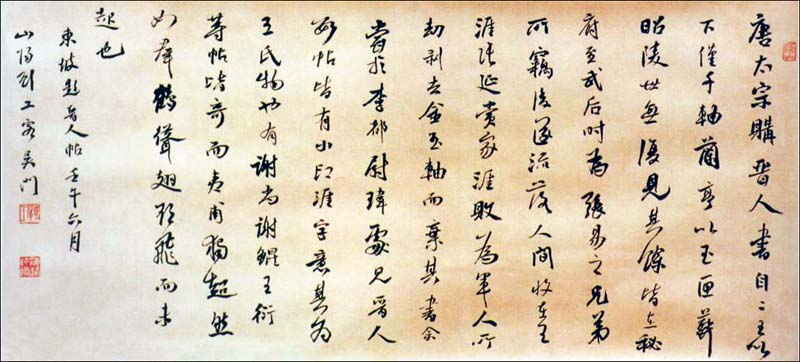 唐太宗購晉人書自二王以
下僅千軸蘭亭以玉匣葬
昭陵世無復見其餘皆在秘
府至武后时為張易之兄弟
所竊後遂流落人間收在王
涯張延賞家涯敗為軍人所
劫剥去金玉軸而棄其書余
嘗於李都尉瑋處見晉人
數帖皆有小印涯字意其為
王氏物也有謝尚謝鯤王衍
等帖皆奇而夷甫獨超然
如羣鶴聳翅欲飛而未
起也
東坡題晉人帖壬午六月
山陽劉工客吳門